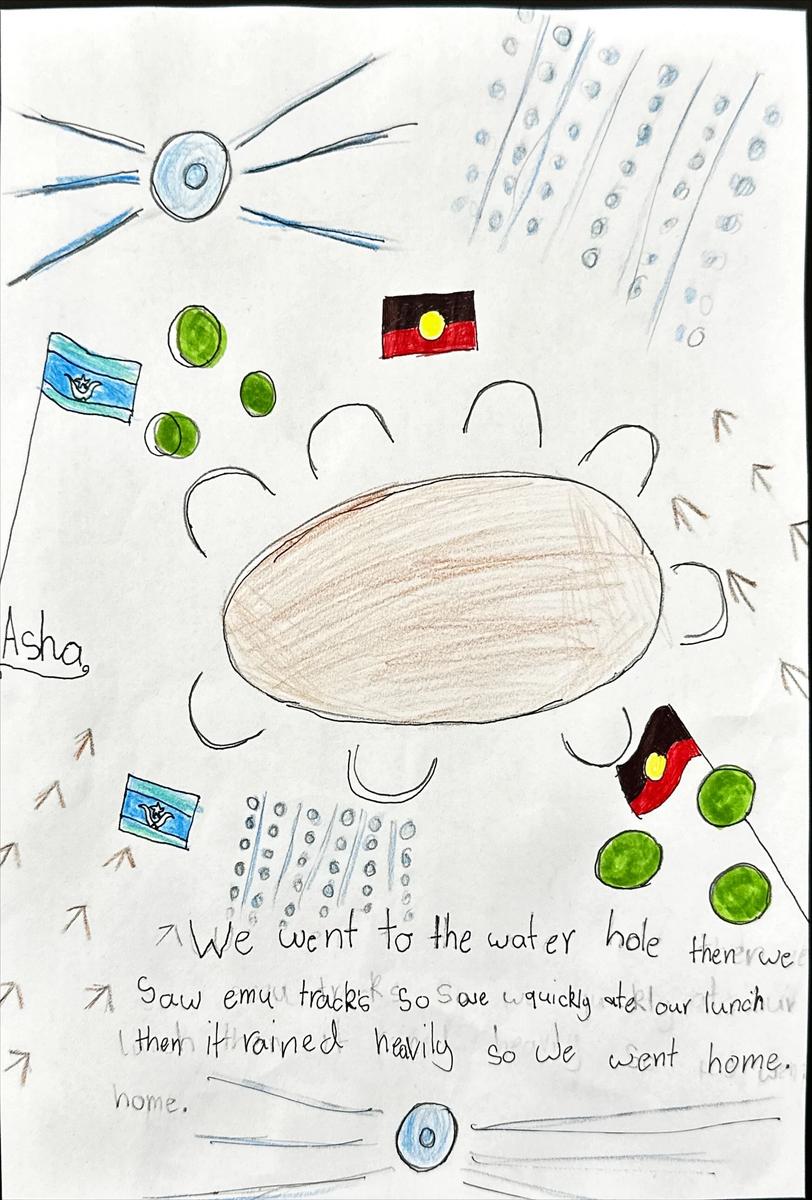 Asha
We went to the water hole then we
Saw emu tracks so we quickly ate our lunch
then it rained heavily so we went home.
home.